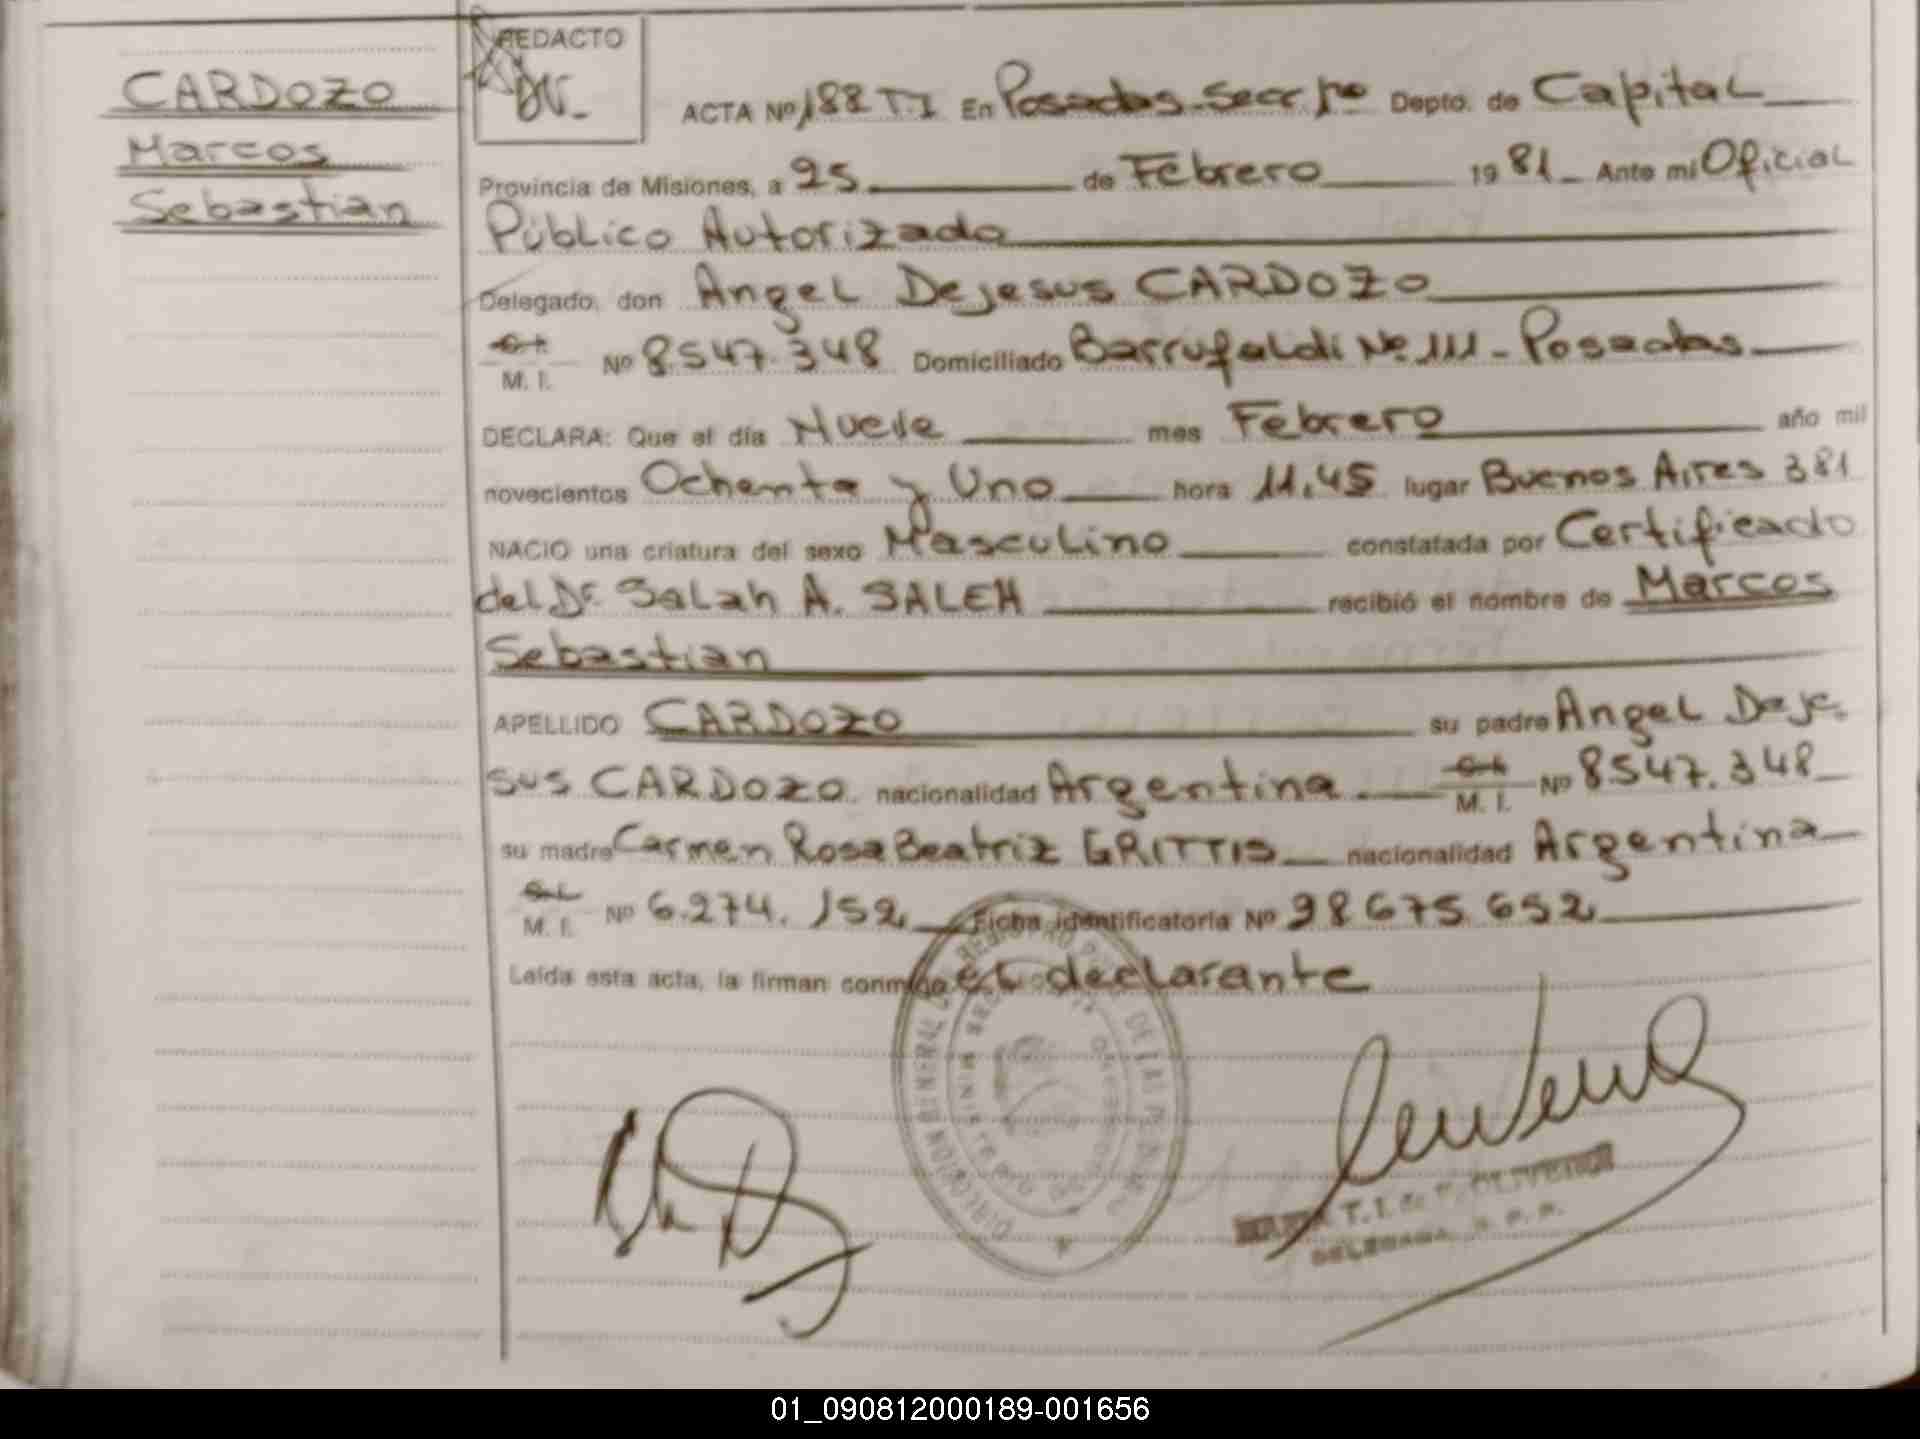 CARDOZO
Marcos
Sebastian
REDACTO
ACTA Nº 188 T.I En Posadas-Secc 1ª Depto. de Capital
Provincia de Misiones, a 25 de Febrero 1981 Ante mi Oficial
Público Autorizado
Delegado, don Angel Dejesus CARDOZO
M. I. Nº 8.547.348 Domiciliado Barrufaldi Nº 111 - Posadas
DECLARA: Que el día Nueve mes Febrero año mil
novecientos Ochenta y Uno hora 11,45 lugar Buenos Aires 381
NACIO una criatura del sexo Masculino constatada por Certificado
del Dr. Salah A. SALEH recibió el nombre de Marcos
Sebastian
APELLIDO CARDOZO su padre Angel Deje-
sus CARDOZO nacionalidad Argentina M. I. Nº 8.547.348
su madre Carmen Rosa Beatriz GRITTIS nacionalidad Argentina
M. I. Nº 6.274.152 Ficha identificatoria Nº 28 675 652
Leída esta acta, la firman conmigo el declarante
T. I. de OLIVERA
DELEGADA
01_090812000189-001656